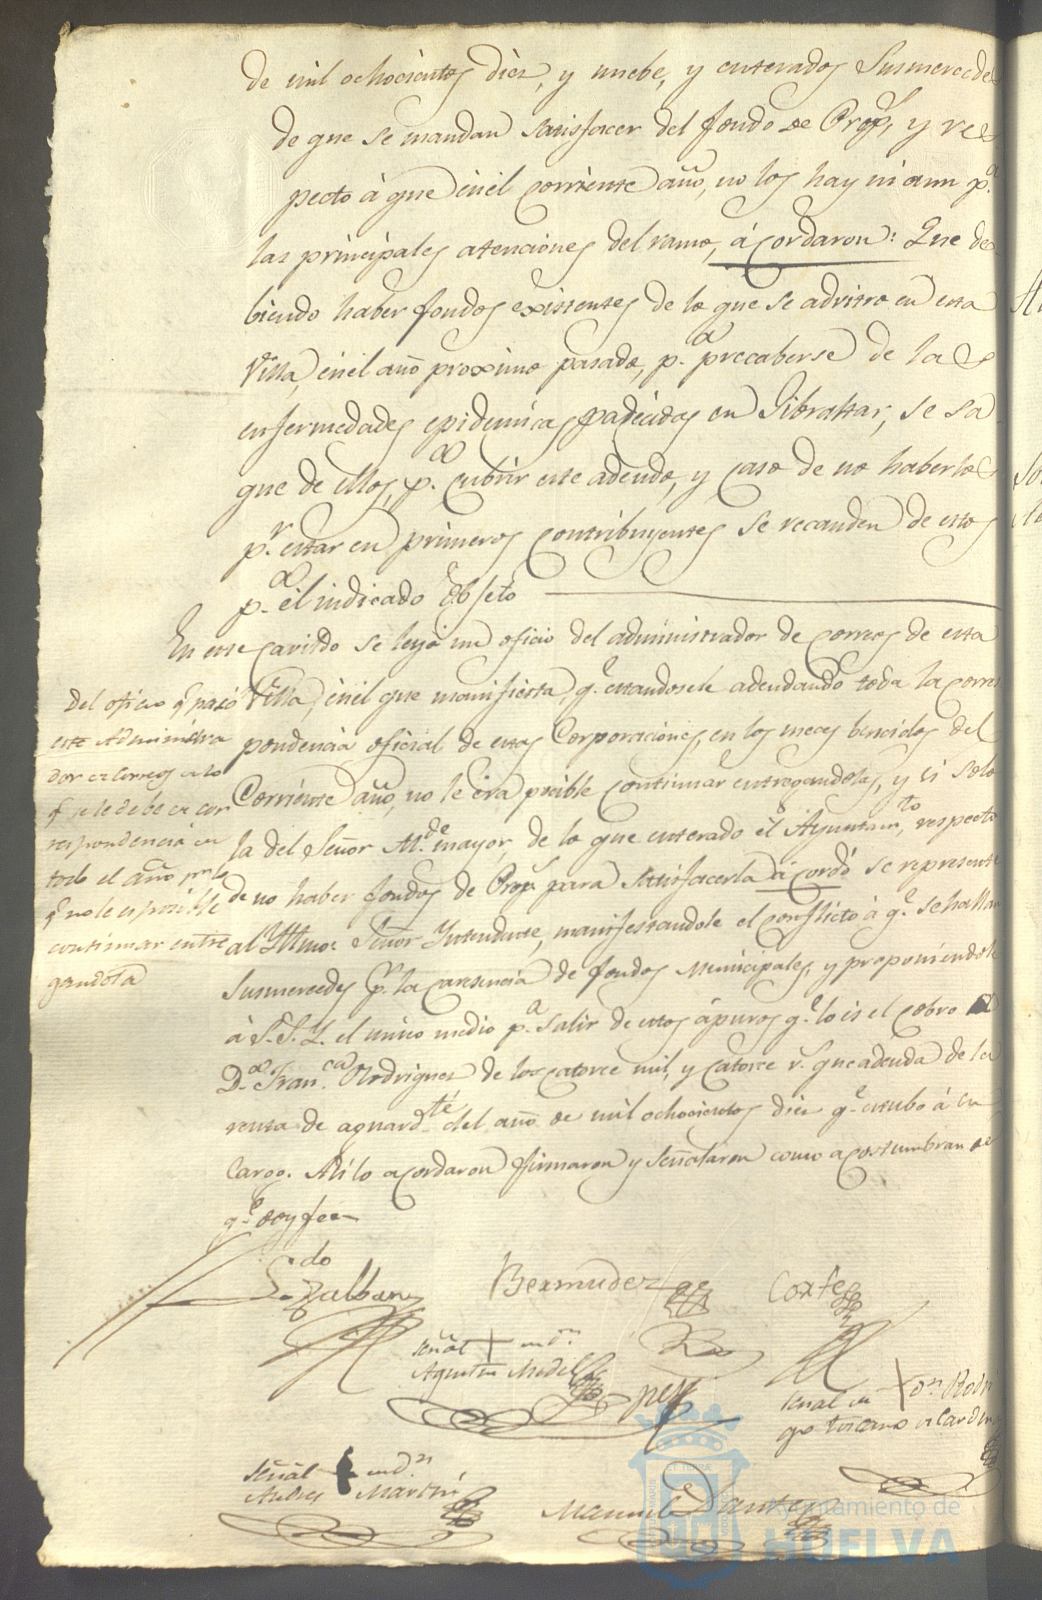 de mil ochocientos diez, y nuebe, y enterados Susmercede
de que se mandan satisfacer del fondo de Propˢ, y res
pecto à que en èl Corriente año, no los hay ni aun p.ª
las principales atenciones del ramo, àcordaron: Que de
biendo haber fondos existentes de lo que se advitro en esta
Villa, en èl año proximo pasado, p.ª precaberse de las
enfermedades epidemicas padecidas en Gibraltar, se sa
que de ellos, p.ª cubrir este adeudo, y caso de no haberlos
p.r estar en primeros contribuyentes se recauden de estos
p.ª èl indicado Obgeto
En este cavildo se leyò un oficio del administrador de Correos de esta
Villa, en èl que manifiesta, q.e estandosele adeudando toda la corres
pondencia oficial de estas Corporaciones, en los meces bencidos del
Corriente año, no le era posible continuar entregandolas, y si solo
la del Señor Alc.de mayor, de lo que enterado èl Ayuntam.to, respecto
de no haber fondos de Propˢ para satisfacerla àcordò se represente
al Yllmo: Señor Yntendente, manifestandole el conflicto à q.e se hallan
Susmercedes p.r la caresencia de fondos Municipales, y proponiendole
à S.S.Y. el unico medio p.ª salir de estos àpuros q.e lo es el cobro
D.ª Fran.ca Rodriguez de los catorce mil, y catorce r.s que adeuda de la
renta de aguard.te del año de mil ochocientos diez q.e estubo à su
Cargo. Asi lo acordaron firmaron y señalaron como acostumbran de
q.e doy fee
Del oficio q.e pasò
este Administra
dor de Correos de lo
q.e se le debe de cor
respondencia en
todo el año p.r lo
q.e no le es posible
continuar entre
gandola
L.do
Bermudez
Cortes
señal + de D.n
Agustin
señal de + D.n Rodri
go Toscano de Cardenas
señal + de D.n
Andres Martin
Manuel
Ayuntamiento de
HUELVA